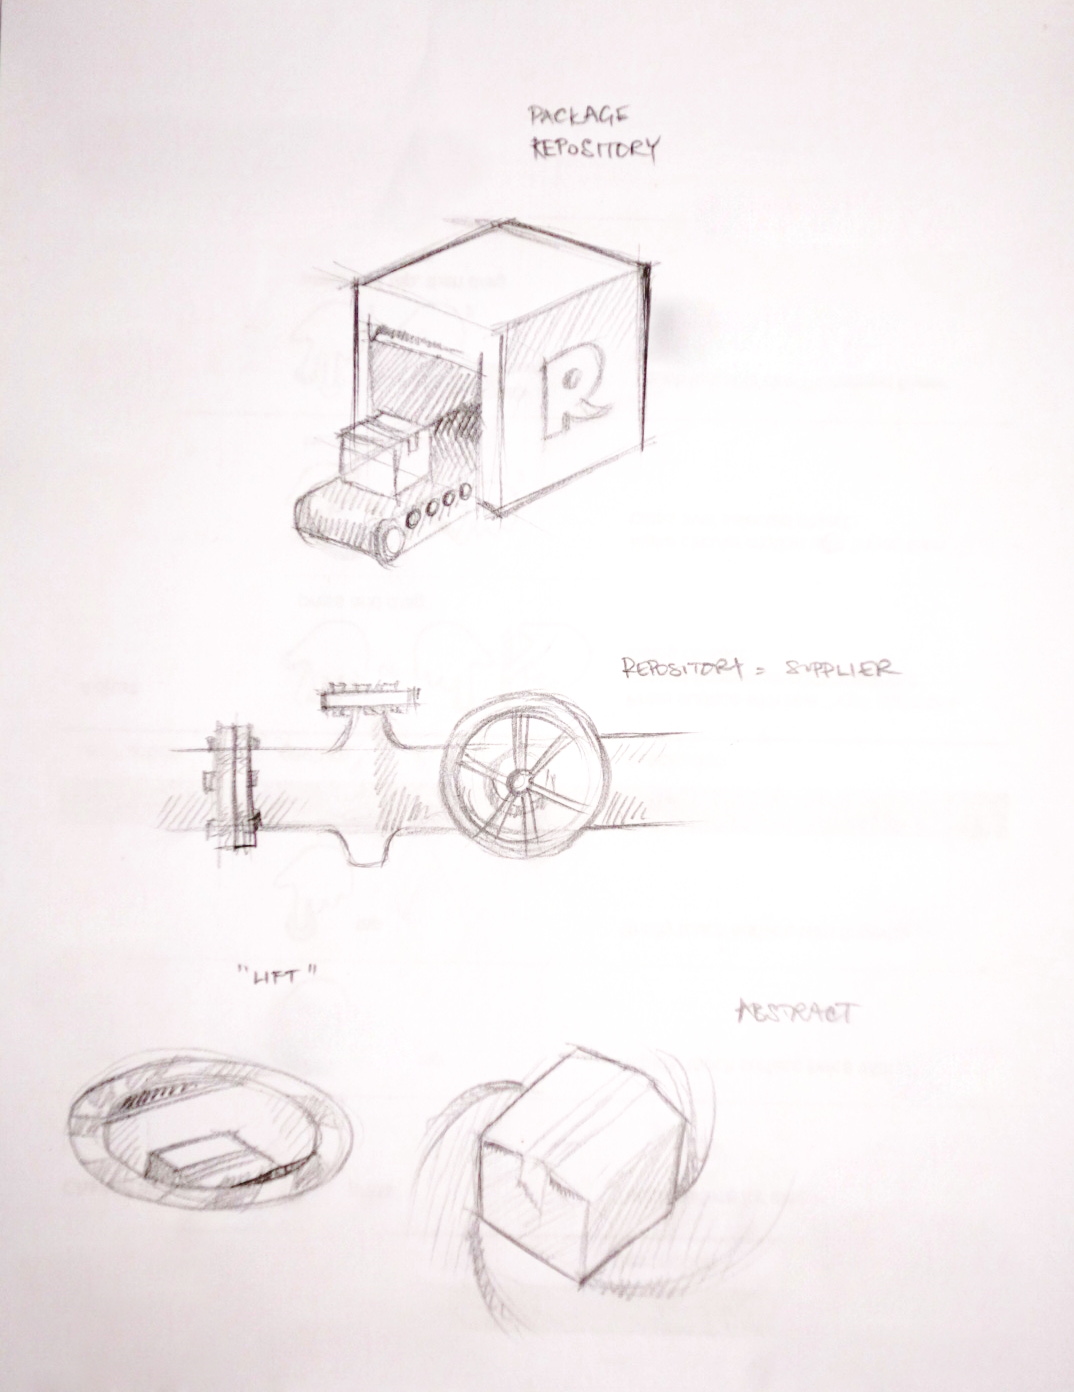 PACKAGE
REPOSITORY
R
REPOSITORY = SUPPLIER
"LIFT"
ABSTRACT